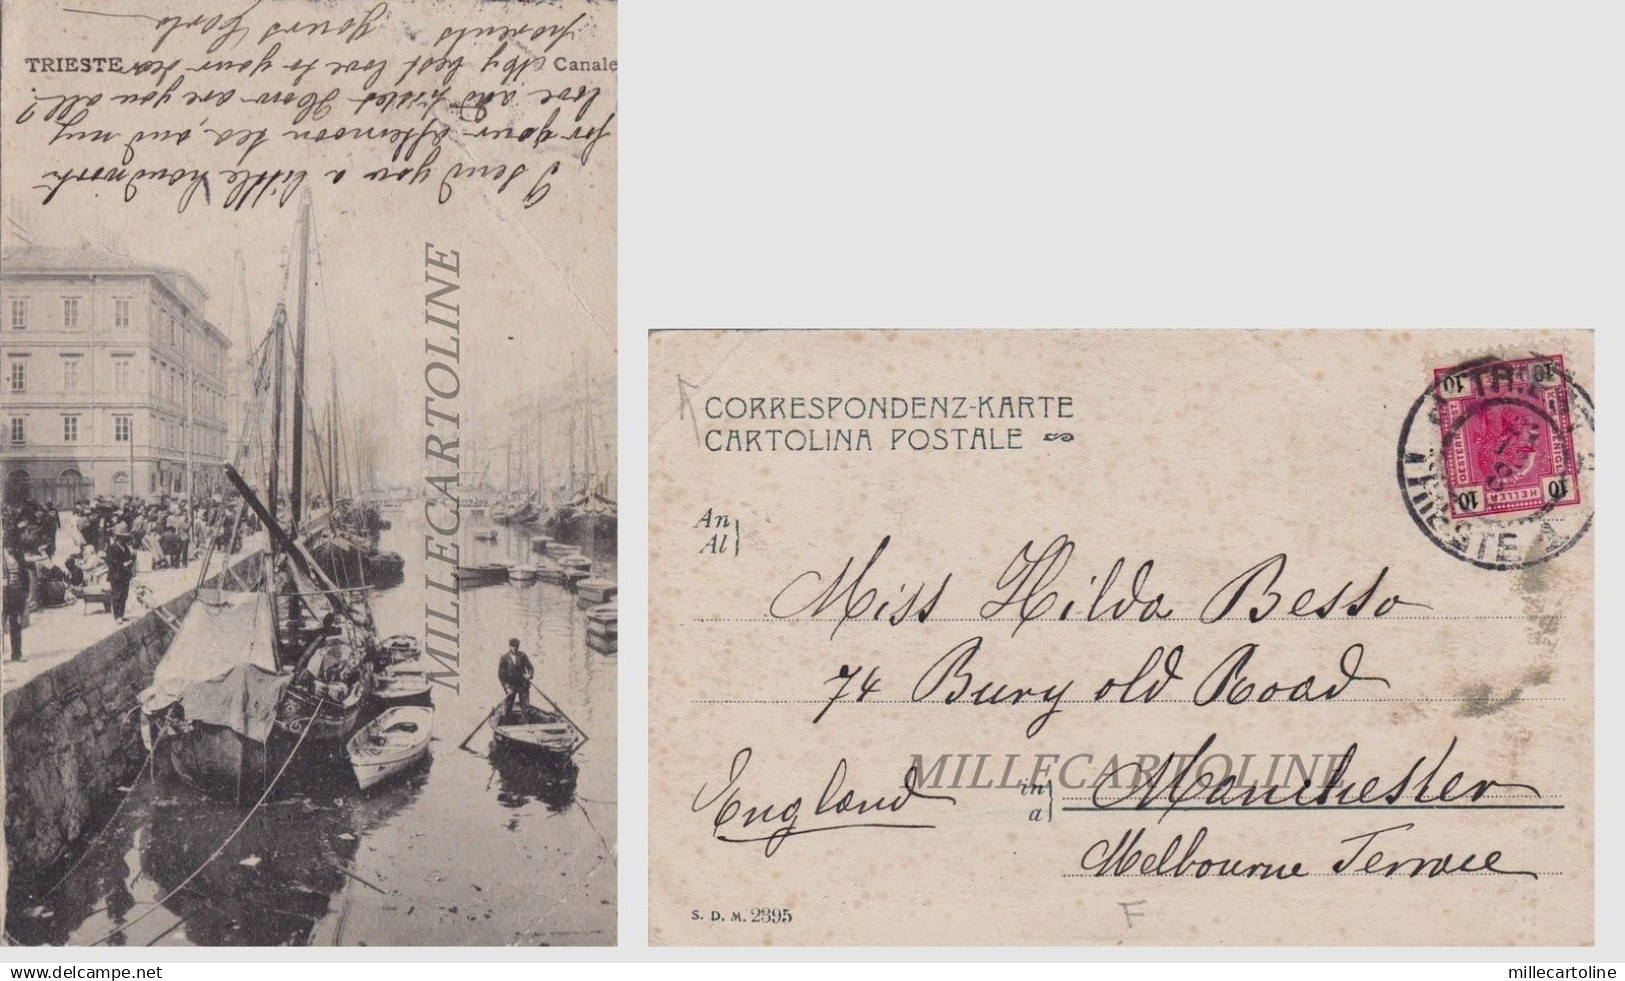 TRIESTE
Canale
I send you a little handwork
for your afternoon tea, and my
love and kisses How are you all?
My best love to your dear
parents. Yours Carlo
MILLECARTOLINE
CORRESPONDENZ-KARTE
CARTOLINA POSTALE
10 10
HELLER
10 10
TRIESTE
An
Al
Miss Hilda Besso
74 Bury old Road
England
in
a
Manchester
Melbourne Terrace
MILLECARTOLINE
S. D. M. 2395
F
delcampe.net
millecartoline